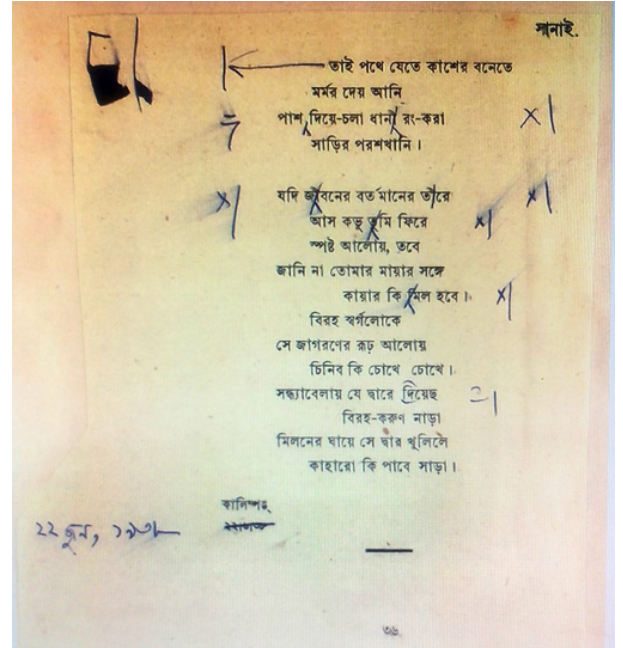 সানাই.
তাই পথে যেতে কাশের বনেতে
মর্মর দেয় আনি
পাশ দিয়ে-চলা ধানী রং-করা
সাড়ির পরশখানি।
যদি জীবনের বর্তমানের তীরে
আস কভু তুমি ফিরে
স্পষ্ট আলোয়, তবে
জানি না তোমার মায়ার সঙ্গে
কায়ার কি মিল হবে।
বিরহ স্বর্গলোকে
সে জাগরণের রূঢ় আলোয়
চিনিব কি চোখে চোখে।
সন্ধ্যাবেলায় যে দ্বারে দিয়েছ
বিরহ-করুণ নাড়া
মিলনের ঘায়ে সে দ্বার খুলিলে
কাহারো কি পাবে সাড়া।
কালিম্পঙ্
২২ জুন, ১৯৩৮
৩৬